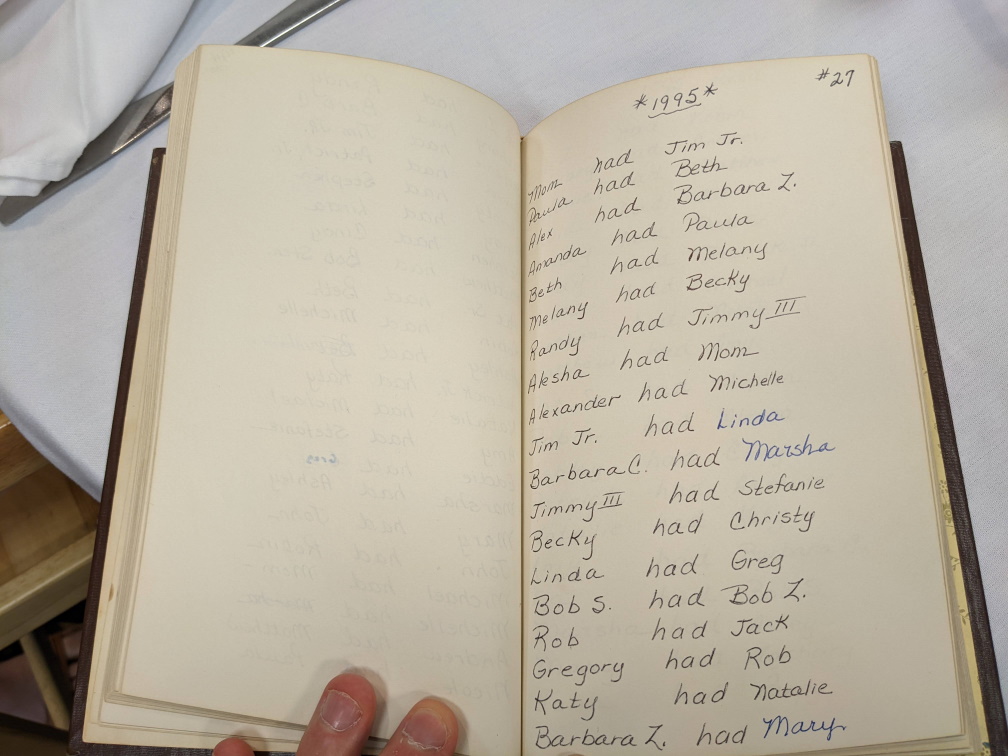 *1995*
#27
Mom had Jim Jr.
Paula had Beth
Alex had Barbara Z.
Amanda had Paula
Beth had Melany
Melany had Becky
Randy had Jimmy III
Alesha had Mom
Alexander had Michelle
Jim Jr. had Linda
Barbara C. had Marsha
Jimmy III had Stefanie
Becky had Christy
Linda had Greg
Bob S. had Bob Z.
Rob had Jack
Gregory had Rob
Katy had Natalie
Barbara Z. had Mary